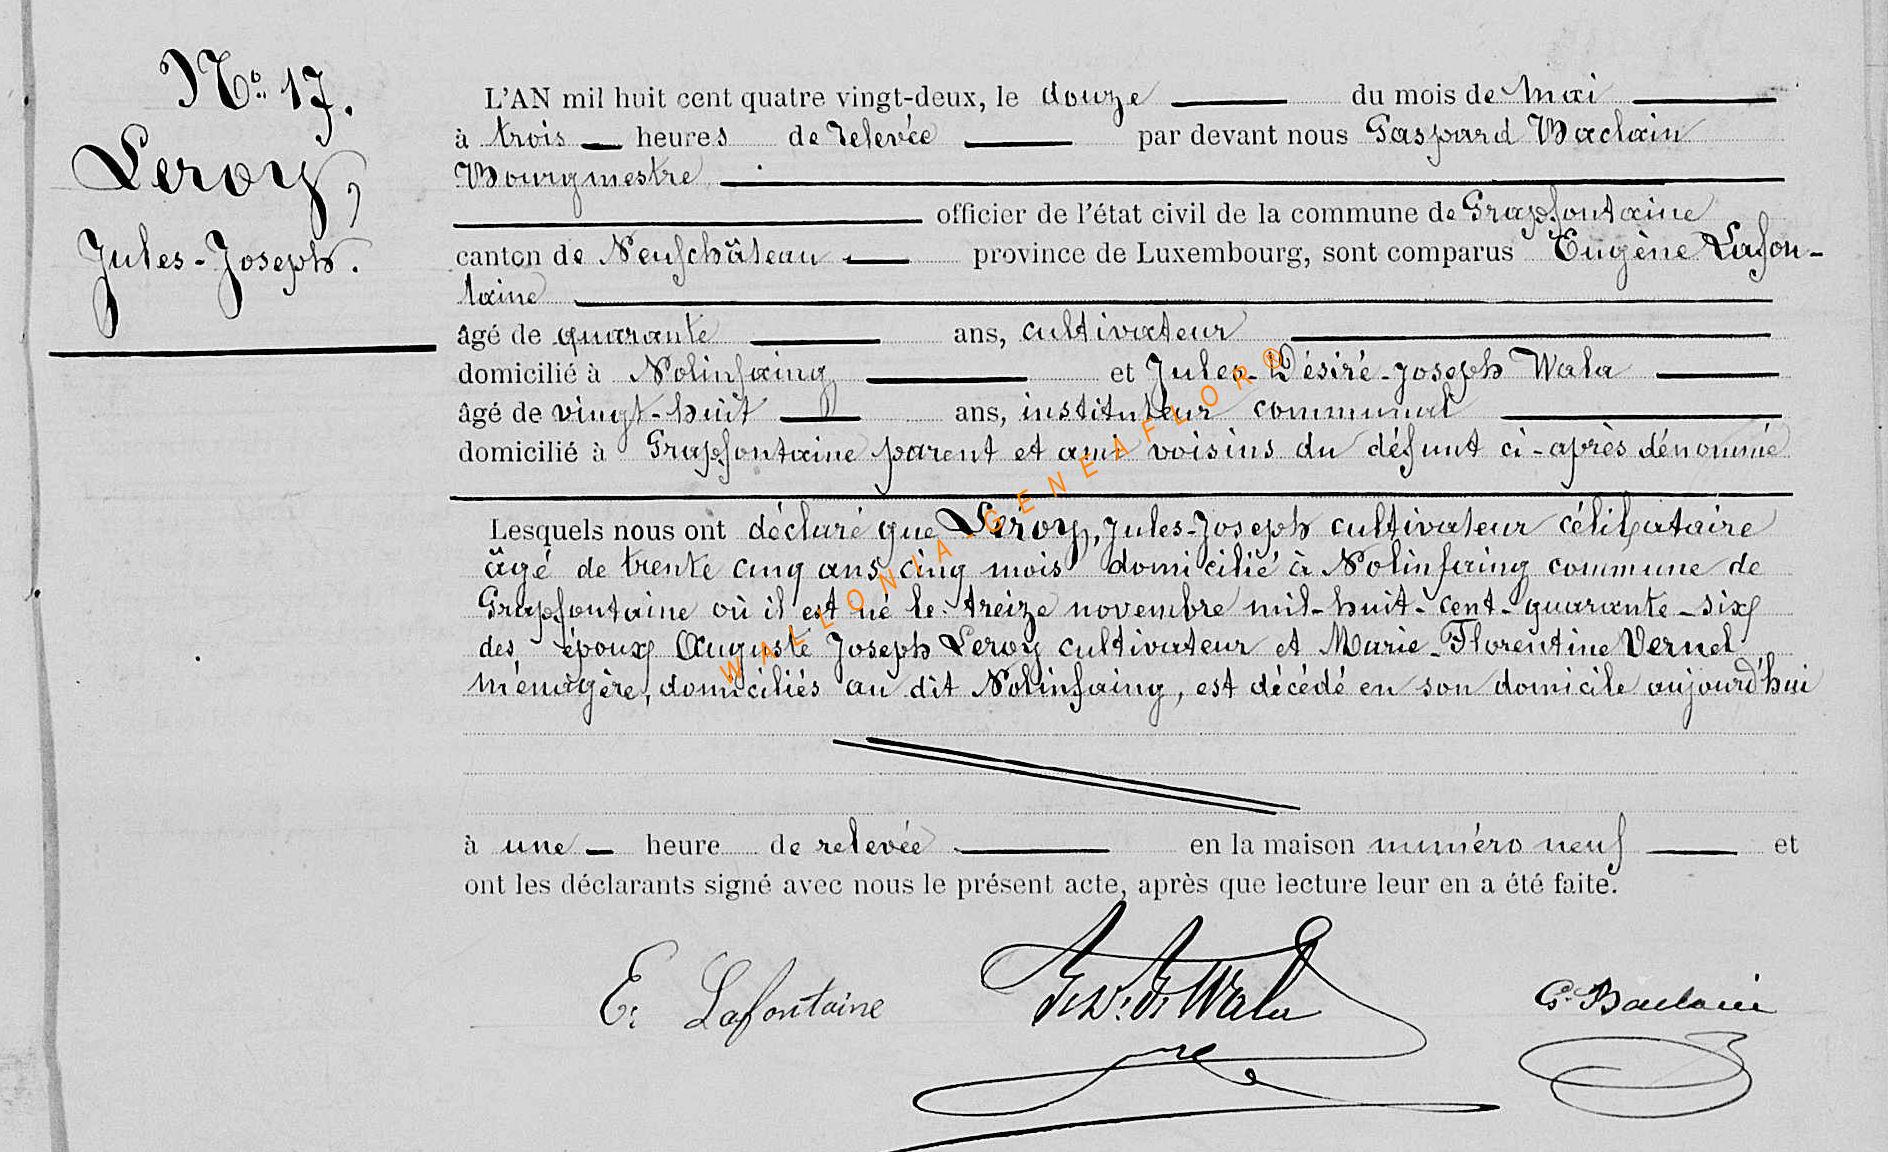 N° 17.
Leroy,
Jules-Joseph.
L'AN mil huit cent quatre vingt-deux, le douze du mois de Mai
à trois heures de relevée par devant nous Gaspard Baclain
Bourgmestre
officier de l'état civil de la commune de Grapfontaine
canton de Neufchâteau province de Luxembourg, sont comparus Eugène Lafon-
taine
âgé de quarante ans, cultivateur
domicilié à Nolinfaing et Jules-Désiré-Joseph Wala
âgé de vingt-huit ans, instituteur communal
domicilié à Grapfontaine parent et ami voisins du défunt ci-après dénommé
Lesquels nous ont déclaré que Leroy, Jules-Joseph cultivateur célibataire
âgé de trente cinq ans cinq mois domicilié à Nolinfaing commune de
Grapfontaine où il est né le treize novembre mil-huit-cent-quarante-six
des époux Auguste Joseph Leroy cultivateur et Marie-Florentine Vernel
ménagère, domiciliés au dit Nolinfaing, est décédé en son domicile aujourd'hui
à une heure de relevée en la maison numéro neuf et
ont les déclarants signé avec nous le présent acte, après que lecture leur en a été faite.
E. Lafontaine J. D. J. Wala G. Baclain
WALLONIA-GENEAFLOR®